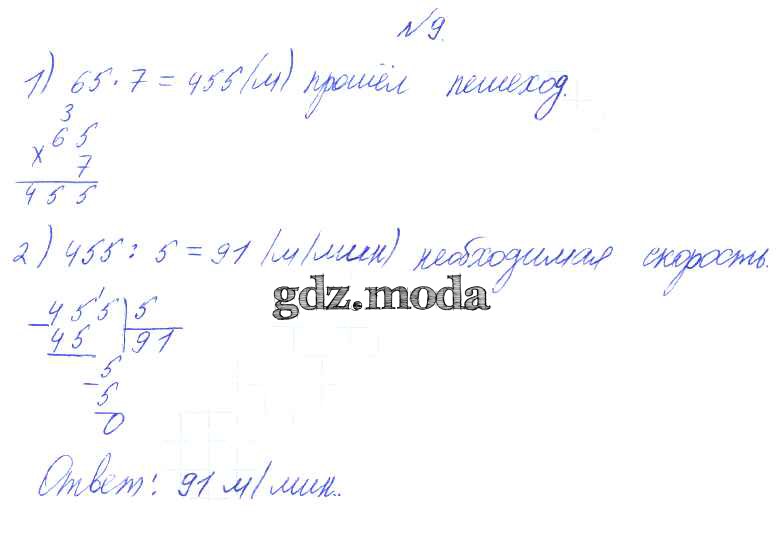 №9.
1) 65 · 7 = 455 (м) прошёл пешеход.
3
× 65
7
455
2) 455 : 5 = 91 (м/мин) необходимая скорость.
gdz.moda
− 455 | 5
45 | 91
− 5
5
0
Ответ: 91 м/мин.